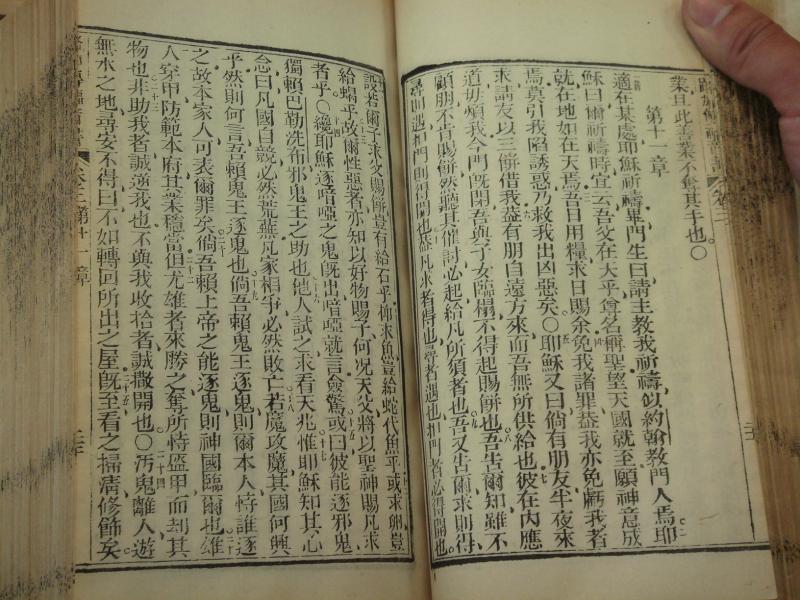 業且此善業不奪其手也〇
第十一章
適在某處耶穌祈禱畢門生曰請主教我祈禱似約翰教門人焉耶
穌曰爾祈禱時宜云吾父在天乎尊名稱聖望天國就至願神意成
就在地如在天焉吾日用糧求日賜余免我諸罪葢我亦免虧我者
焉莫引我陷誘惑乃救我出凶惡矣〇耶穌又曰倘有朋友半夜來
求請友以三餅借我葢有朋自遠方來而吾無所供給也彼在內應
道毋煩我今門既閉吾與子女臨榻不得起賜餅也吾告爾知雖不
顧朋不肯賜餅然聽其催討必起給凡所須者也吾又告爾求則得
尋則遇扣門則得開也葢凡求者得也尋者遇也扣門者必得開也
設若爾子求父賜餅豈有給石乎抑求魚豈給蛇代魚乎或求卵豈
給蝎乎故爾性惡者亦知以好物賜子何況天父將以聖神賜凡求
者乎〇纔耶穌逐暗啞之鬼既出暗啞就言僉驚或曰彼能逐邪鬼
獨賴巴勒洗布邪鬼王之助也他人試之求看天兆惟耶穌知其心
念曰凡國自競必然荒蕪凡家相爭必然敗亡若魔攻魔其國何興
乎然則何言吾賴鬼王逐鬼也倘吾賴鬼王逐鬼則爾本人恃誰逐
之故本家人可表爾罪矣倘吾賴上帝之能逐鬼則神國臨爾也雄
人穿甲防範本府其業穩當但尤雄者來勝之奪所恃盔甲而刼其
物也非助我者誠逆我也不與我收拾者誠撒開也〇汚鬼離人遊
無水之地尋安不得曰不如轉回所出之屋既至看之掃清修飾矣
卷三第十一章